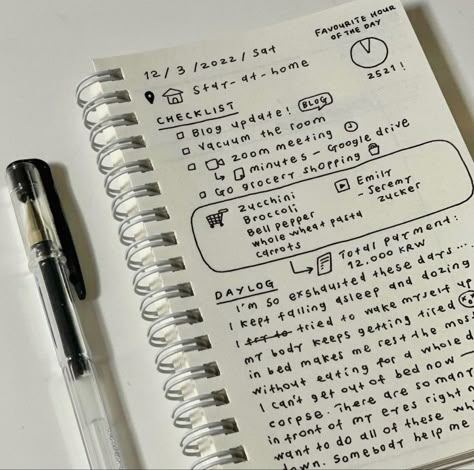 FAVOURITE HOUR
OF THE DAY
2521!
12/3/2022/Sat
Stay-at-home
CHECKLIST
Blog update! BLOG
Vacuum the room
Zoom meeting
minutes - Google drive
Go grocery shopping
Zucchini
Broccoli
Bell pepper
Whole wheat pasta
Carrots
Emily
- Jeremy
Zucker
Total payment:
12.000 KRW
DAYLOG
I'm so exshausted these days...
I kept falling asleep and dozing
I try to tried to wake myself up
my body keeps getting tired
in bed makes me rest the mos
without eating for a whole d
I can't get out of bed now
corpse. There are so many
in front of my eyes right n
want to do all of these whi
down. Somebody help me